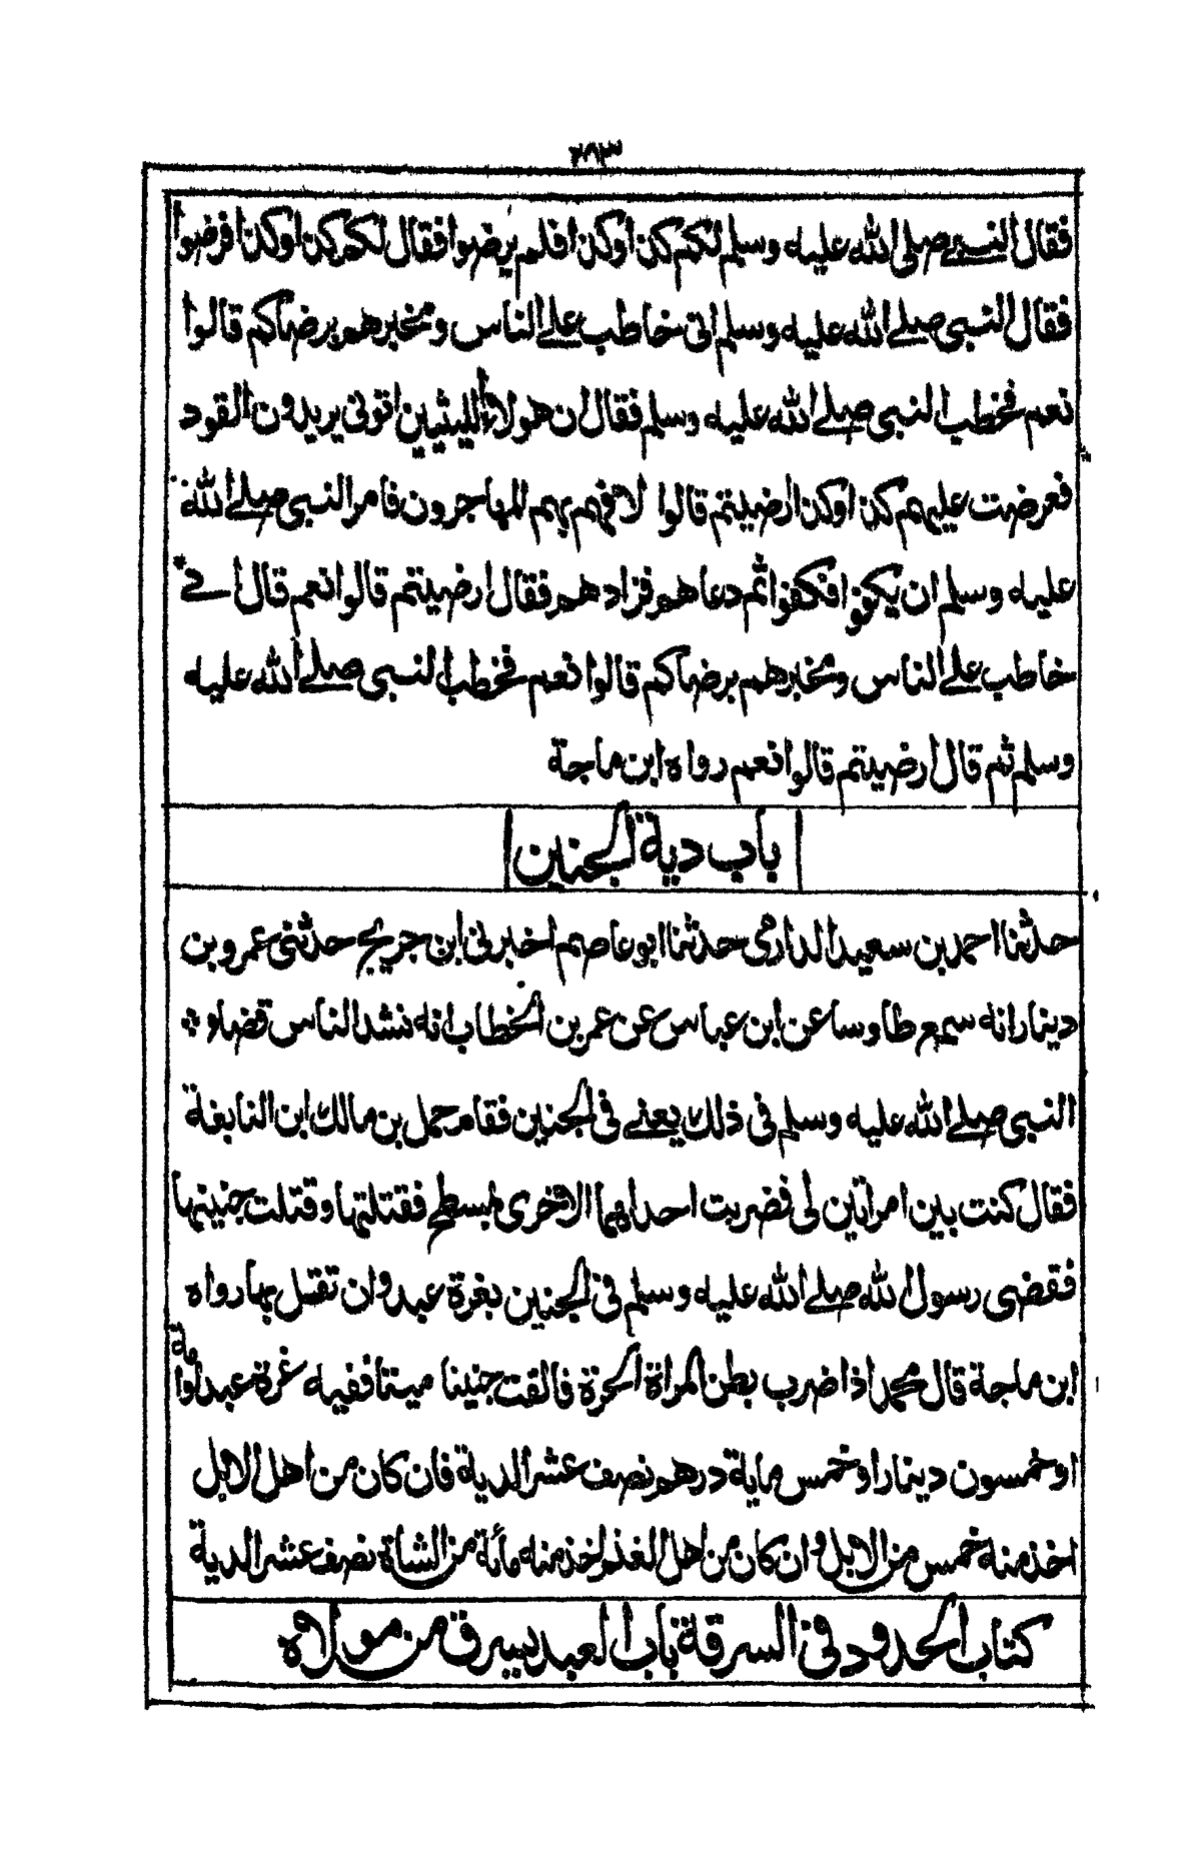 ٣٨٣
فقال النبي صلى الله عليه وسلم لكم كذا وكذا فلم يرضوا فقال لكم كذا وكذا فرضوا
فقال النبي صلے الله عليه وسلم انى خاطب علے الناس ومخبرهم برضاكم قالوا
نعم فخطب النبى صلے الله عليه وسلم فقال ان هولاء الليثيين اتونى يريدون القود
فعرضت عليهم كذا وكذا ارضيتم قالوا لا فهم بهم المهاجرون فامر النبى صلے الله
عليه وسلم ان يكفوا فكفوا ثم دعاهم فزادهم فقال ارضيتم قالوا نعم قال انے
خاطب علے الناس ومخبرهم برضاكم قالوا نعم فخطب النبى صلے الله عليه
وسلم ثم قال ارضيتم قالوا نعم رواه ابن ماجة
باب دية الجنين
حدثنا احمد بن سعيد الدارمى حدثنا ابو عاصم اخبرنى ابن جريج حدثنى عمرو بن
دينار انه سمع طاوسا عن ابن عباس عن عمر بن الخطاب انه نشد الناس قضاء
النبى صلے الله عليه وسلم فى ذلك يعنے فى الجنين فقام حمل بن مالك ابن النابغة
فقال كنت بين امراتين لى فضربت احداهما الاخرى بمسطح فقتلتها وقتلت جنينها
فقضى رسول الله صلے الله عليه وسلم فى الجنين بغرة عبد وان تقتل بها رواه
ابن ماجة قال محمد اذا ضرب بطن المراة الحرة فالقت جنينا ميتا ففيه غرة عبد او امة
او خمسون دينارا او خمس ماية درهم نصف عشر الدية فان كان من اهل الابل
اخذ منه خمس من الابل وان كان من اهل الغنم اخذ منه مائة من الشاة نصف عشر الدية
كتاب الحدود فى السرقة باب العبد يسرق من مولاه